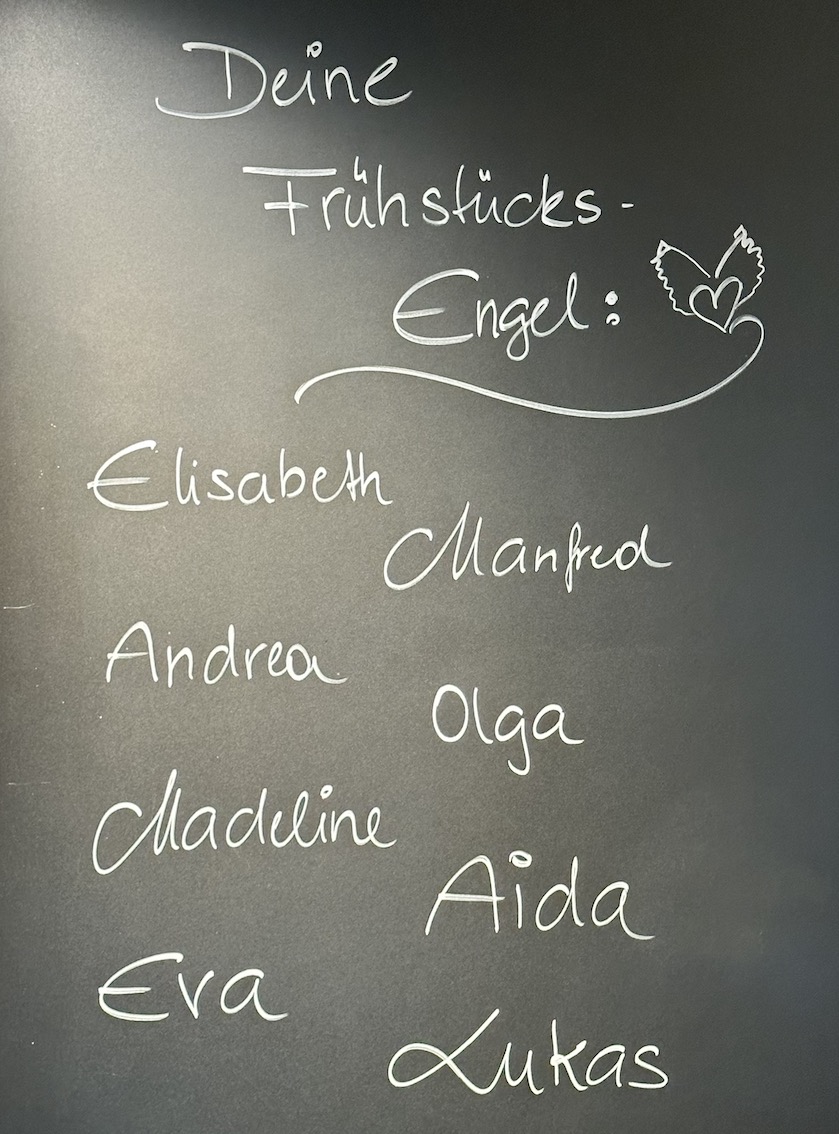 Deine
Frühstücks-
Engel:
Elisabeth
Manfred
Andrea
Olga
Madeline
Aida
Eva
Lukas